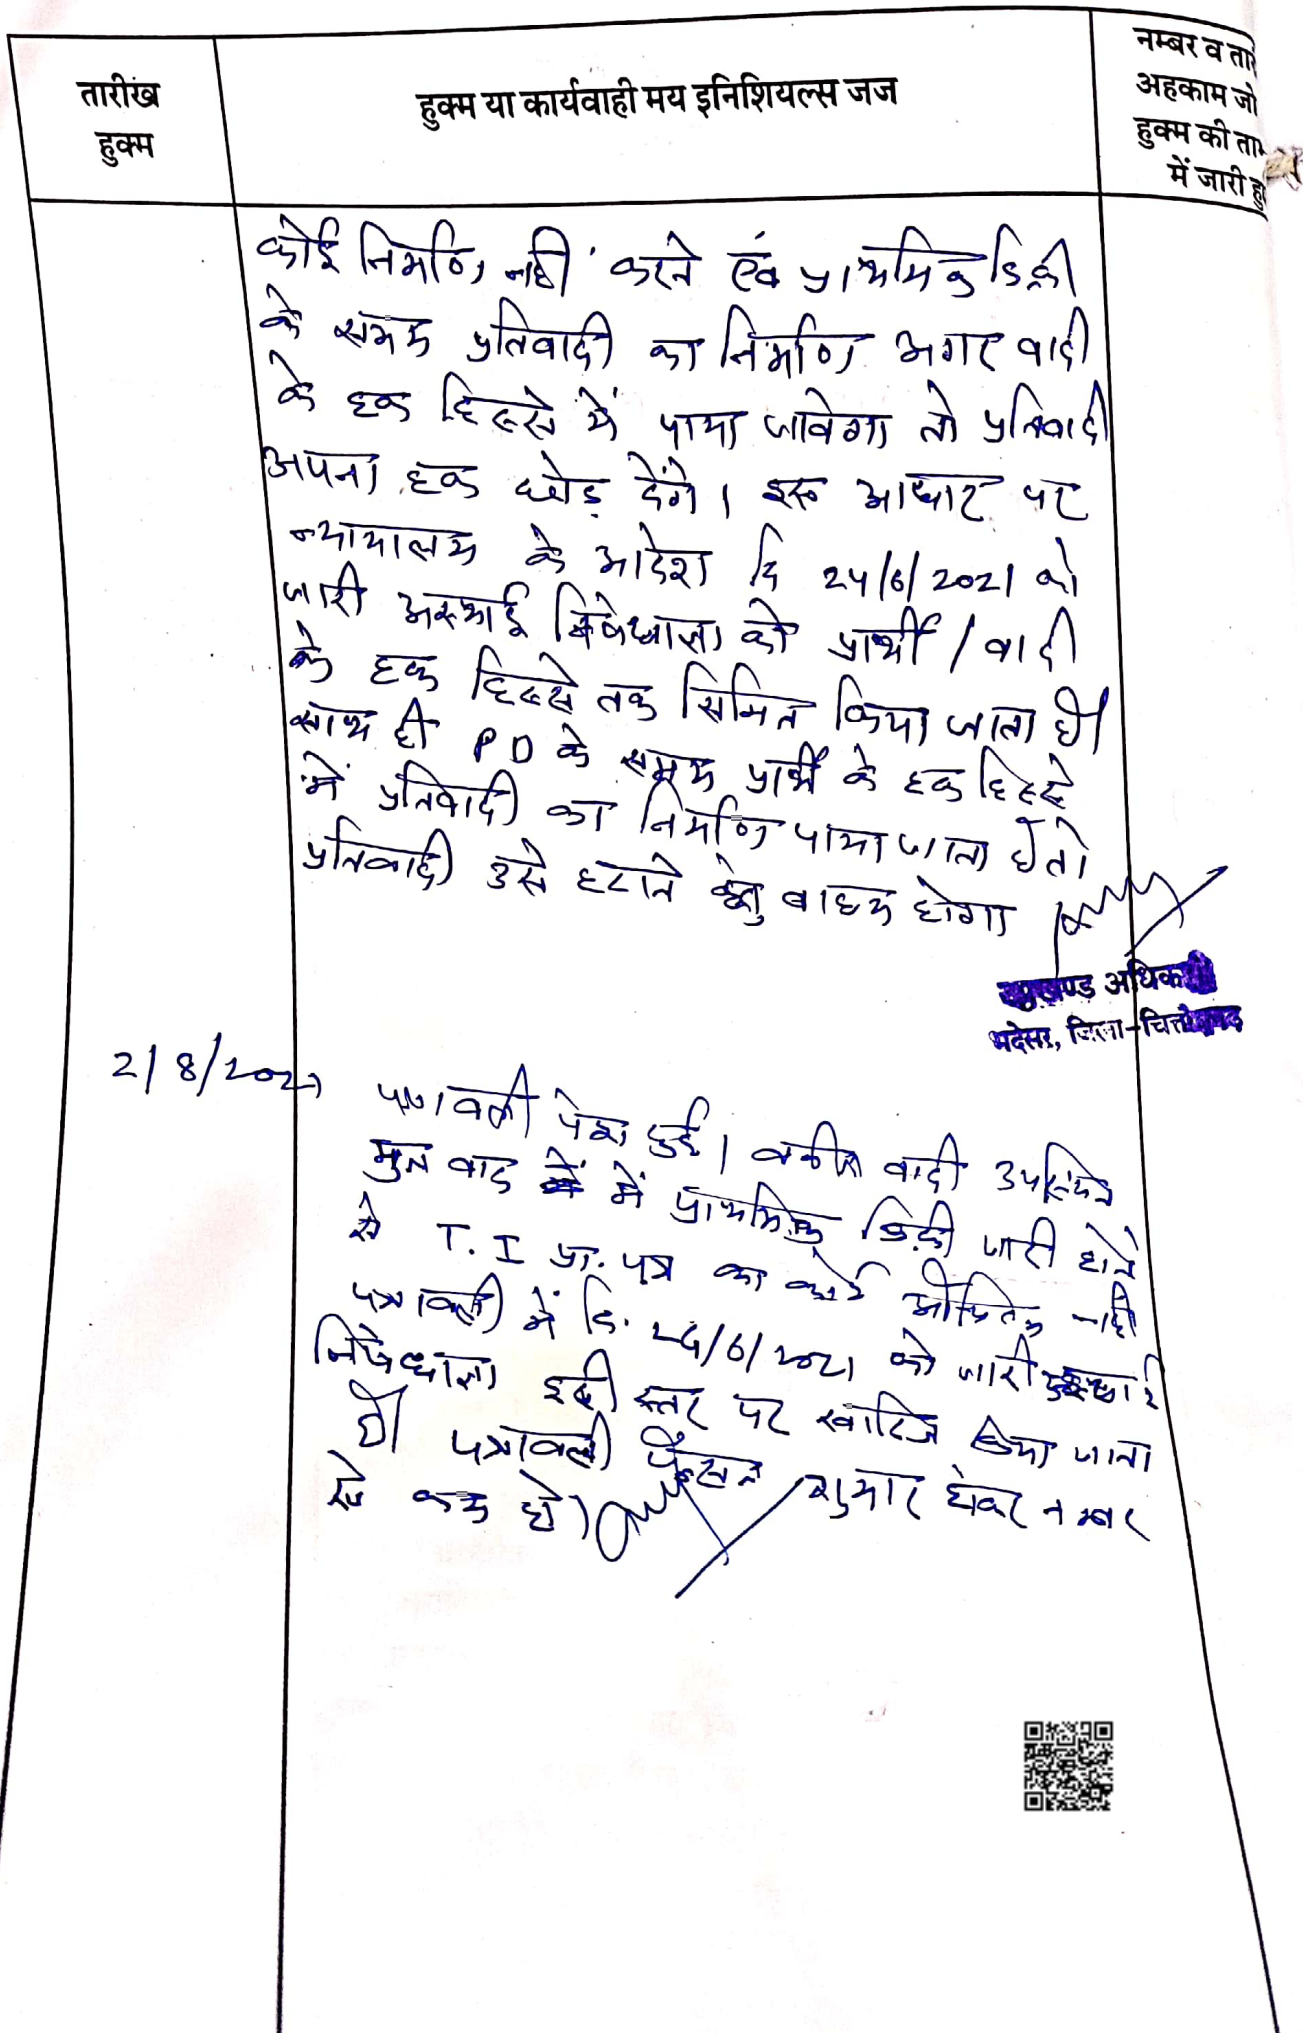 तारीख
हुक्म
हुक्म या कार्यवाही मय इनिशियल्स जज
नम्बर व तारी
अहकाम जो
हुक्म की ताम
में जारी हु
कोई निर्माण नहीं करने एवं प्राथमिक डिक्री
के समय प्रतिवादी का निर्माण अगर वादी
के हक हिस्से में पाया जावेगा तो प्रतिवादी
अपना हक छोड़ देंगे। इस आधार पर
न्यायालय के आदेश दि 24/6/2021 को
जारी अस्थाई निषेधाज्ञा को प्रार्थी / वादी
के हक हिस्से तक सिमित किया जाता है।
साथ ही PD के समय प्रार्थी के हक हिस्से
में प्रतिवादी का निर्माण पाया जाता है तो
प्रतिवादी उसे हटाने हेतु बाध्य होगा
उपखण्ड अधिकारी
भदेसर, जिला-चित्तौड़गढ़
2/8/2021
पत्रावली पेश हुई। वकील वादी उपस्थित
मुल वाद में में प्राथमिक डिक्री जारी होने
से T. I प्रा. पत्र का कोई औचित्य नहीं
पत्रावली में दि. 24/6/2021 को जारी अस्थाई
निषेधाज्ञा इसी स्तर पर खारिज किया जाता
है। पत्रावली फैसल शुमार होकर नम्बर
से कम हो।